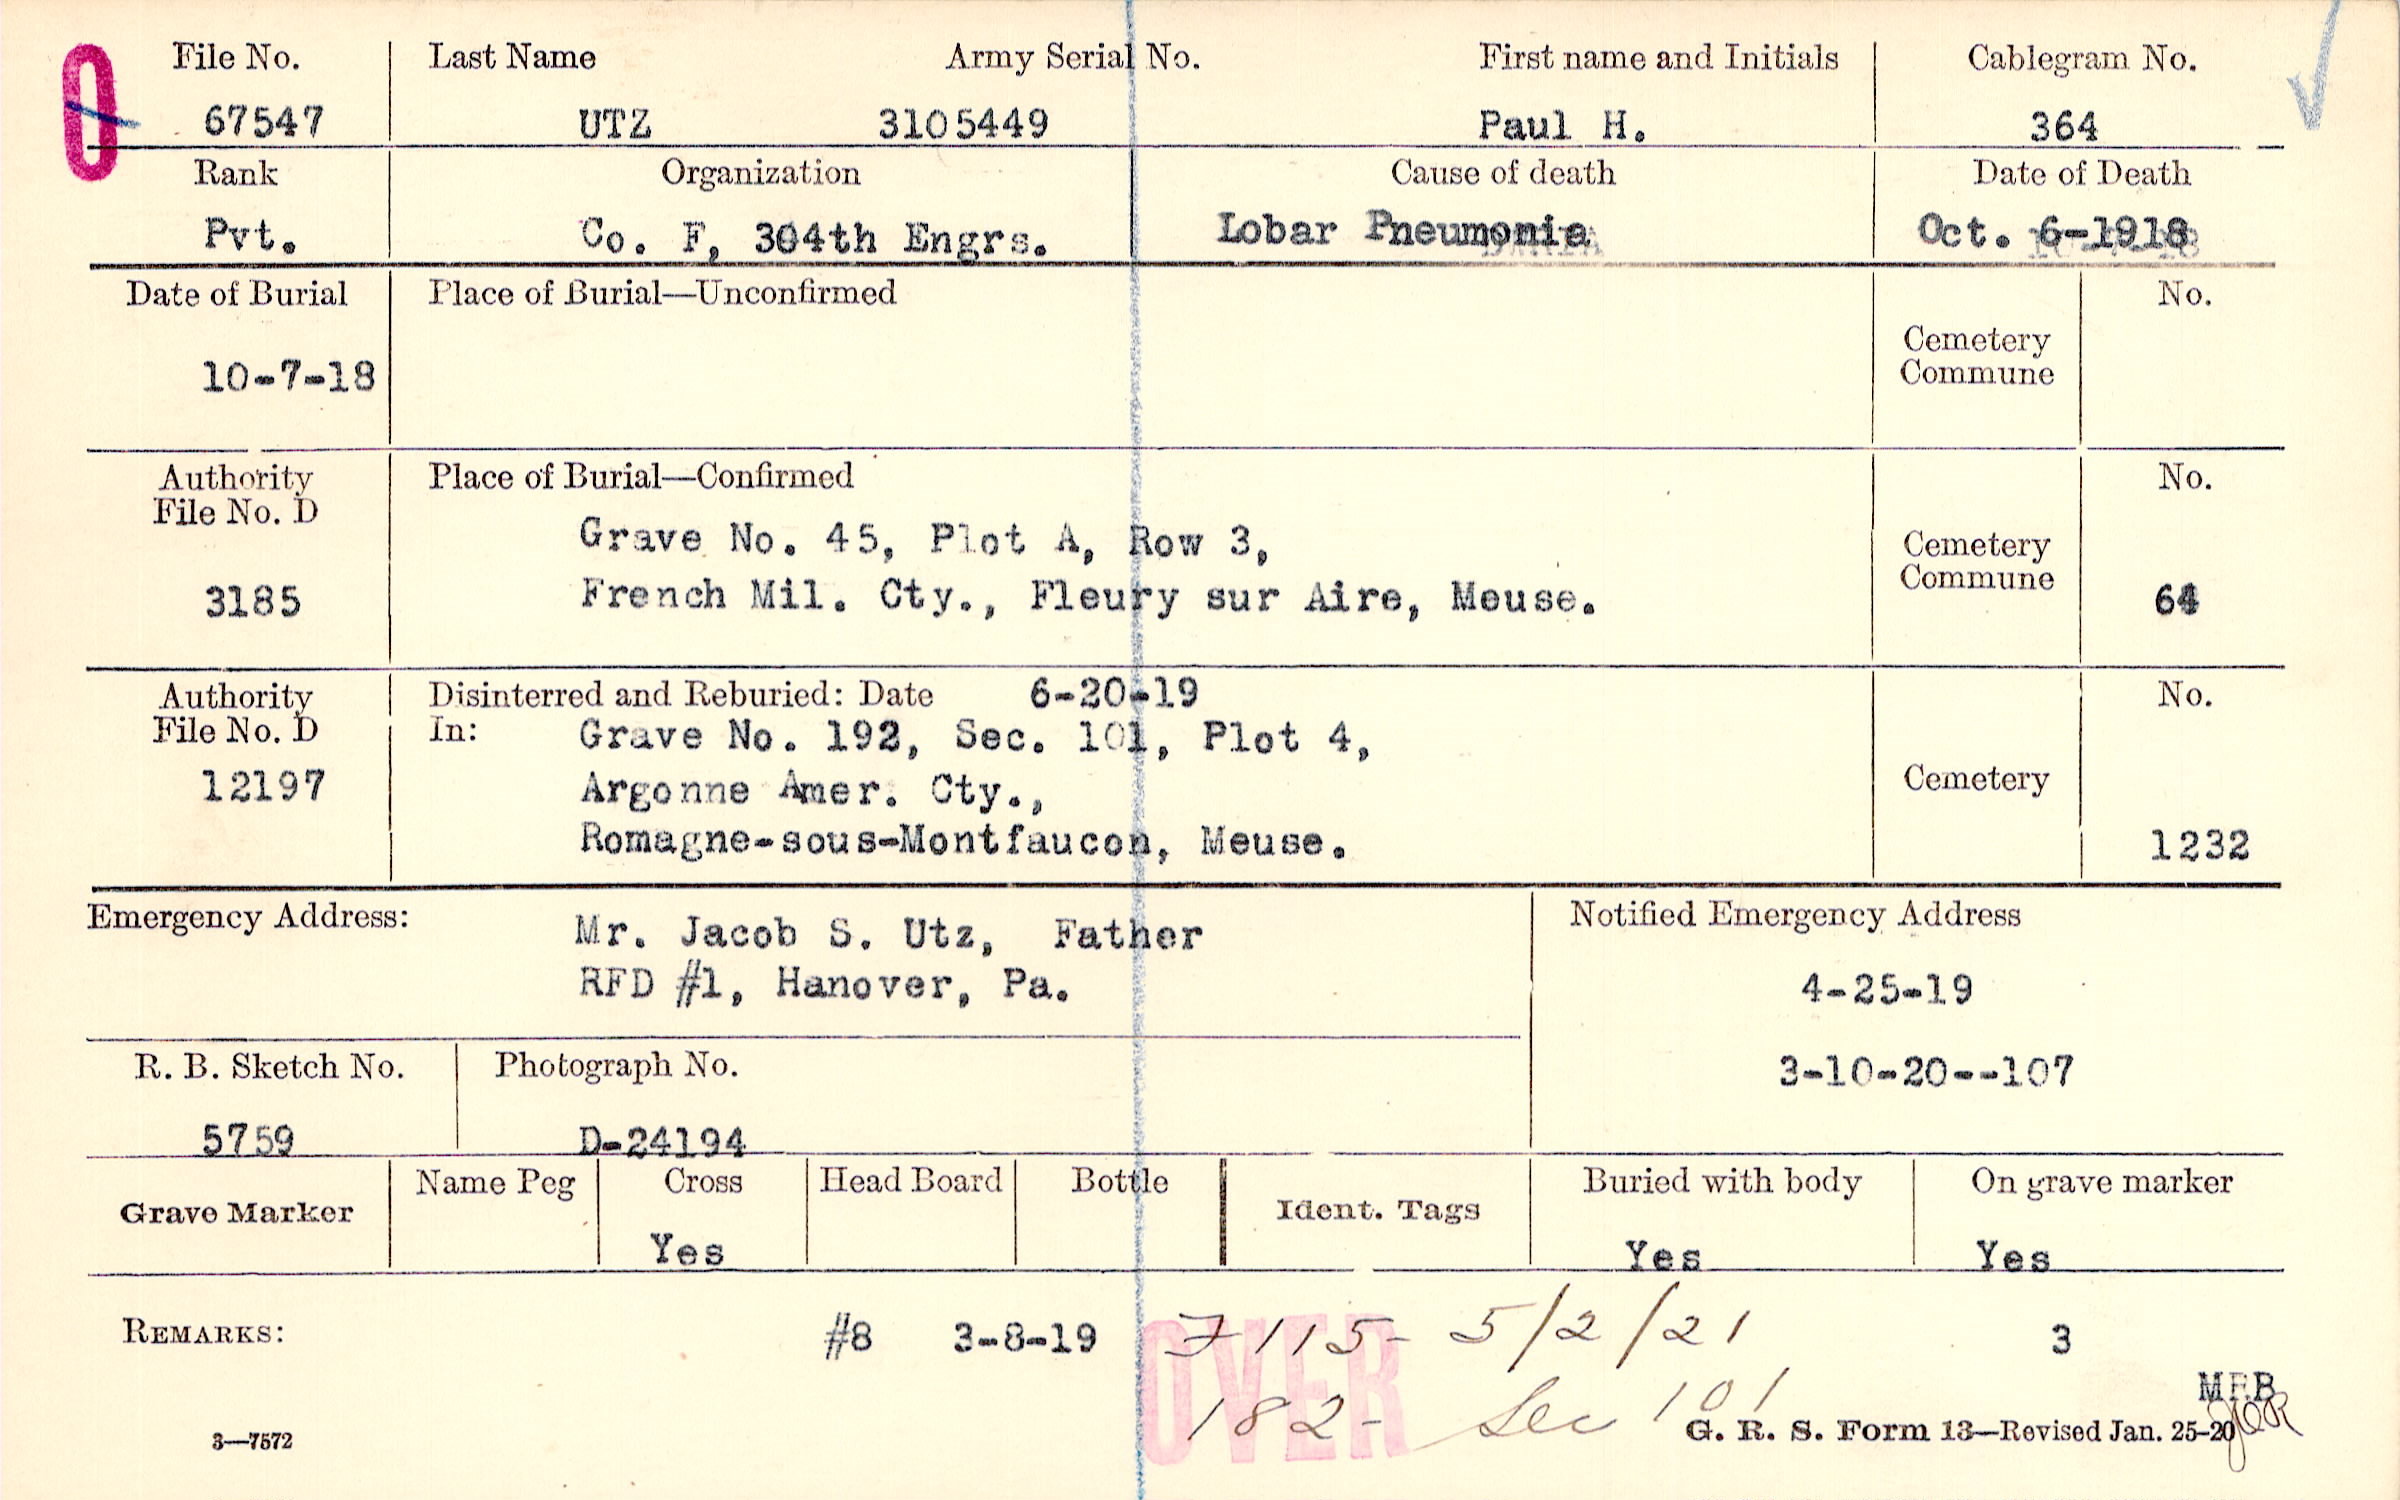 O
File No. Last Name Army Serial No. First name and Initials Cablegram No.
67547 UTZ 3105449 Paul H. 364
Rank Organization Cause of death Date of Death
Pvt. Co. F, 304th Engrs. Lobar Pneumonia Oct. 6-1918
Date of Burial Place of Burial—Unconfirmed No.
10-7-18 Cemetery
Commune
Authority Place of Burial—Confirmed No.
File No. D
Grave No. 45, Plot A, Row 3, Cemetery
3185 French Mil. Cty., Fleury sur Aire, Meuse. Commune 64
Authority Disinterred and Reburied: Date 6-20-19 No.
File No. D In: Grave No. 192, Sec. 101, Plot 4,
12197 Argonne Amer. Cty., Cemetery
Romagne-sous-Montfaucon, Meuse. 1232
Emergency Address: Mr. Jacob S. Utz, Father Notified Emergency Address
RFD #1, Hanover, Pa. 4-25-19
R. B. Sketch No. Photograph No. 3-10-20--107
5759 D-24194
Grave Marker Name Peg Cross Head Board Bottle Ident. Tags Buried with body On grave marker
Yes Yes Yes
REMARKS: #8 3-8-19 7115- 5/2/21 3
OVER
182- Sec 101 MFB
3—7572 G. R. S. Form 13—Revised Jan. 25-20